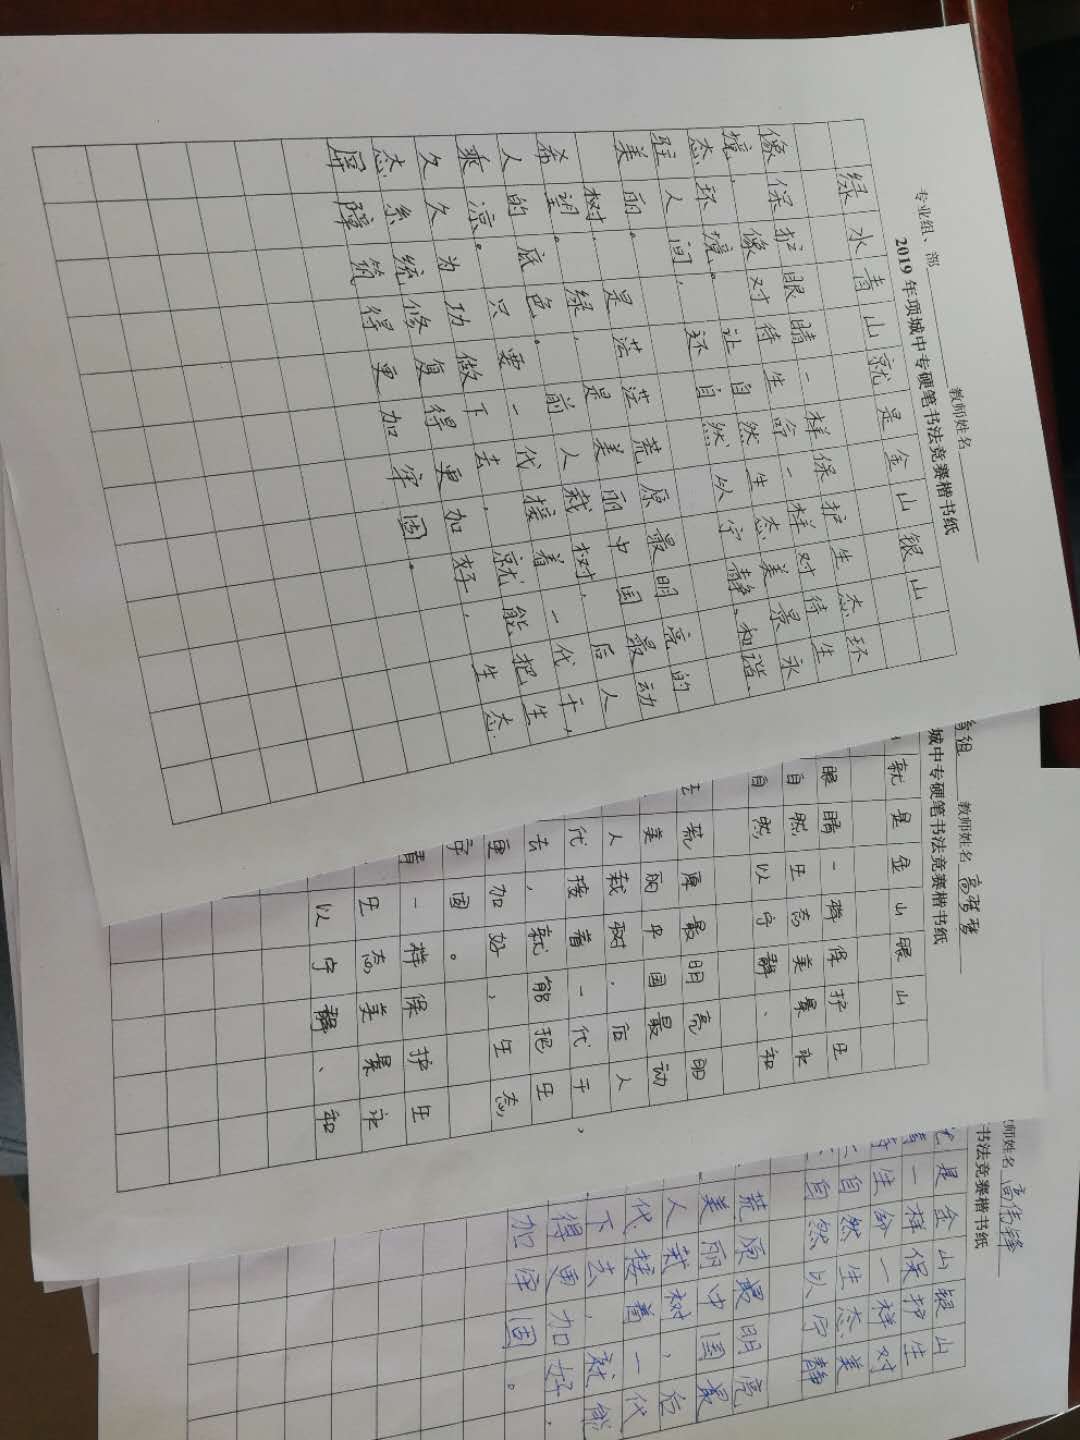 专业组、部 教师姓名
2019 年项城中专硬笔书法竞赛楷书纸
绿水青山就是金山银山
像保护眼睛一样保护生态环
境,像对待生命一样对待生
态环境。让自然生态美景永
驻人间,还自然以宁静、和谐、
美丽。
树,是茫茫荒原最明亮的
希望。绿,是美丽中国最动
人的底色。前人栽树,后人
乘凉。只要一代接着一代干,
久久为功做下去,就能把生
态系统修复得更加好,生态
屏障筑得更加牢固。
组 教师姓名
城中专硬笔书法竞赛楷书纸
就是金山银山
眼睛一样保护生
自然生态美景永
自然以宁静、和
荒原最明亮的
美丽中国最动
人栽树,后人
代接着一代干,
去,就能把生
更加好,生态
牢固。
一样保护生
生态美景永
以宁静、和
师姓名 高伟锋
书法竞赛楷书纸
是金山银山
一样保护生
生命一样对
自然生态美
自然以宁静
荒原最明亮
美丽中国最
人栽树,后
代接着一代
下去,就能
得更加好,
加牢固。